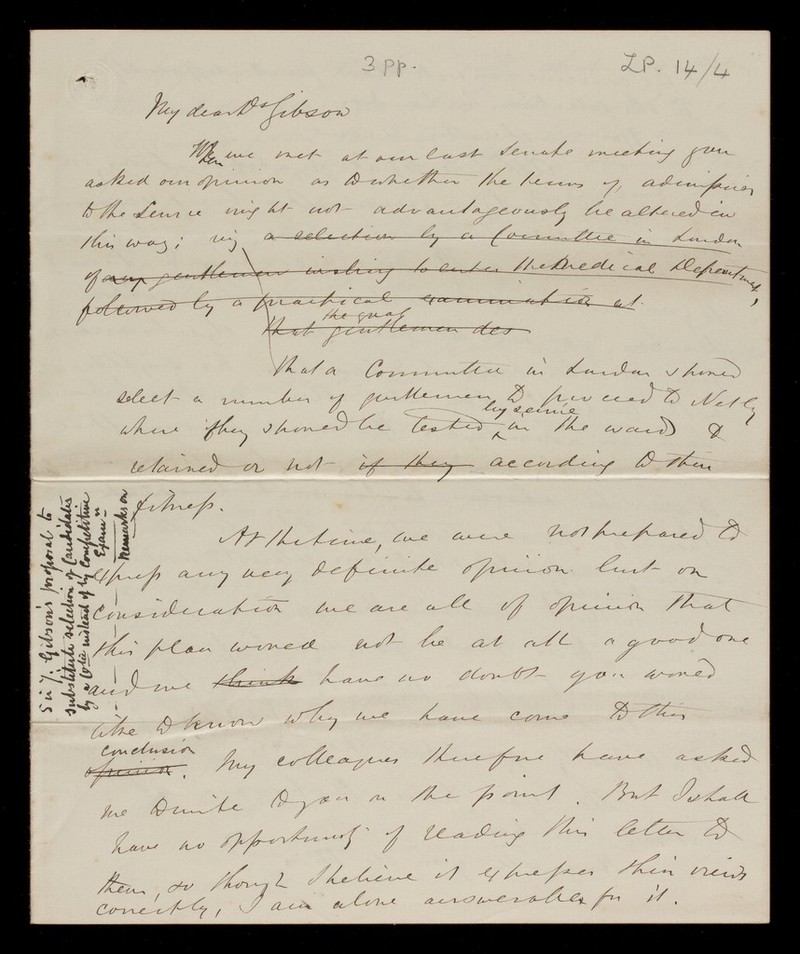 3 pp.
LP. 14/4
My dear Dr Gibson
When we met at our last Senate meeting you
asked our opinion as to whether the terms of admission
to the Service might not advantageously be altered in
this way; viz a selection by a Committee in London
of any gentlemen wishing to enter the Medical Department,
followed by a practical examination at
the qual
that gentlemen des
that a Committee in London should
select a number of gentlemen to proceed to Netley
by service
where they should be tested in the wards &
retained or not if they according to their
fitness.
At the time, we were not prepared to
express any very definite opinion but on
consideration we are all of opinion that
this plan would not be at all a good one
and we think have no doubt you would
like to know why we have come to this
conclusion
opinion. My colleagues therefore have asked
me to write to you on the point. But I shall
have no opportunity of reading this letter to
them, so though I believe it expresses their views
correctly, I am alone answerable for it.
Sir J. Gibson's proposal to
substitute selection of Candidates
by a Co instead of by Competitive
Exam n
Remarks on